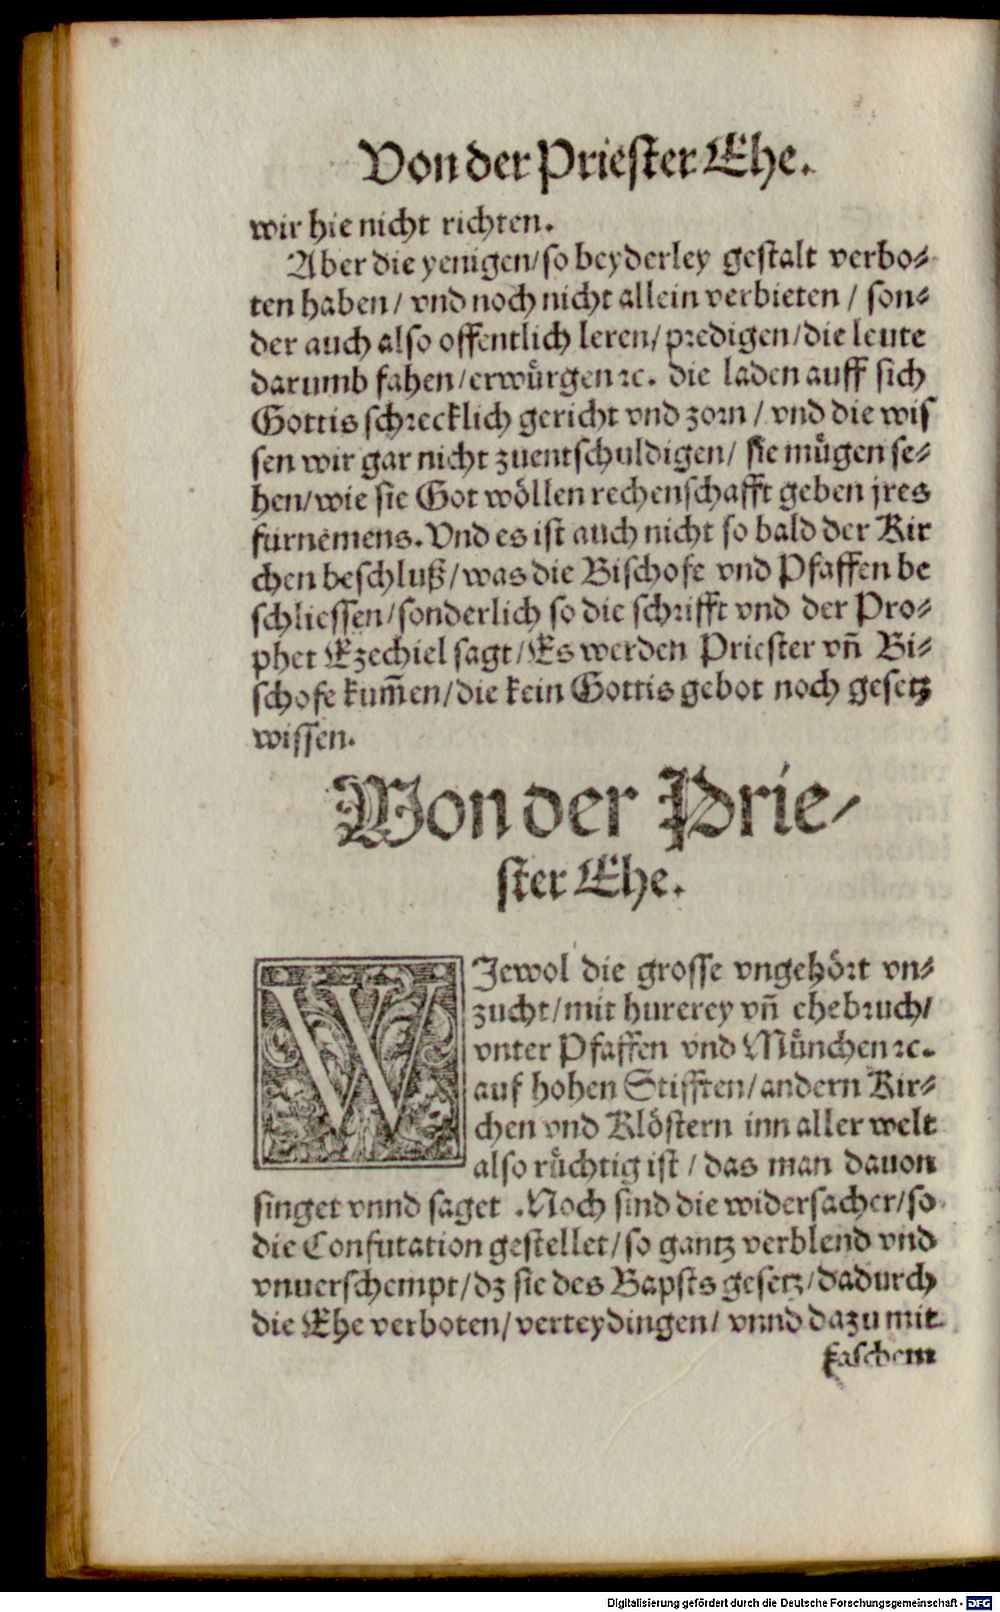 Von der Priester Ehe.
wir hie nicht richten.
Aber die yenigen/so beyderley gestalt verbo⸗
ten haben/ vnd noch nicht allein verbieten / son⸗
der auch also offentlich leren/ predigen/die leute
darumb fahen/erwürgen ꝛc. die laden auff sich
Gottis schrecklich gericht vnd zorn / vnd die wis
sen wir gar nicht zuentschuldigen/ sie mügen se⸗
hen/wie sie Got wöllen rechenschafft geben jres
fürnemens. Vnd es ist auch nicht so bald der Kir
chen beschluß/was die Bischofe vnd Pfaffen be
schliessen/sonderlich so die schrifft vnd der Pro⸗
phet Ezechiel sagt/Es werden Priester vn̄ Bi⸗
schofe kum̄en/die kein Gottis gebot noch gesetz
wissen.
Von der Prie/
ster Ehe.
WJewol die grosse vngehört vn⸗
zucht/mit hurerey vn̄ ehebruch/
vnter Pfaffen vnd München ꝛc.
auf hohen Stifften/andern Kir⸗
chen vnd Klöstern inn aller welt
also rüchtig ist / das man dauon
singet vnnd saget .Noch sind die widersacher/so
die Confutation gestellet/so gantz verblend vnd
vnuerschempt/dz sie des Bapsts gesetz/dadurch
die Ehe verboten/verteydingen/ vnnd dazu mit
faschem
Digitalisierung gefördert durch die Deutsche Forschungsgemeinschaft - DFG